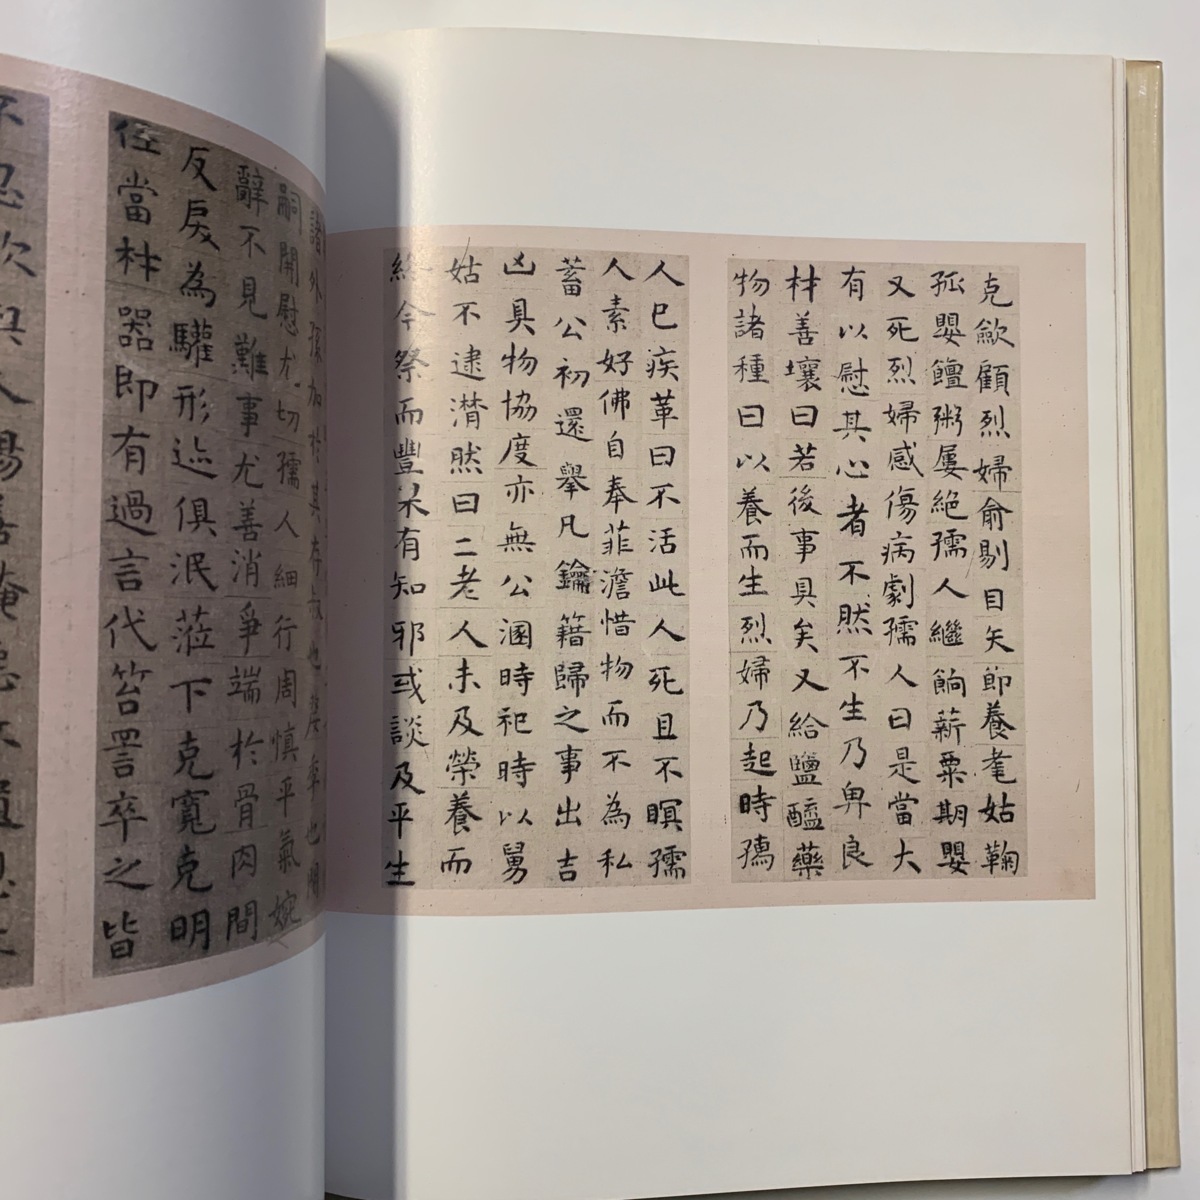 克歛顧烈婦俞剔目矢節養耄姑鞠
孤嬰饘粥屢絕孺人繼餉薪粟期嬰
又死烈婦感傷病劇孺人曰是當大
有以慰其心者不然不生乃畀良
材善壤曰若後事具矣又給鹽醯藥
物諸種曰以養而生烈婦乃起時孺
人已疾革曰不活此人死且不瞑孺
人素好佛自奉菲澹惜物而不為私
蓄公初還舉凡鑰籍歸之事出吉
凶具物協度亦無公溷時祀時以舅
姑不逮潸然曰二老人未及榮養而
終今祭而豐某有知邪或談及平生
諸外孫加於其存叔也率也
嗣開慰尤切孺人細行周慎平氣婉
辭不見難事尤善消爭端於骨肉間
反戾為驩形迹俱泯蒞下克寬克明
任當材器即有過言代笞詈卒之皆
不忍欺與人揚善掩惡不遺